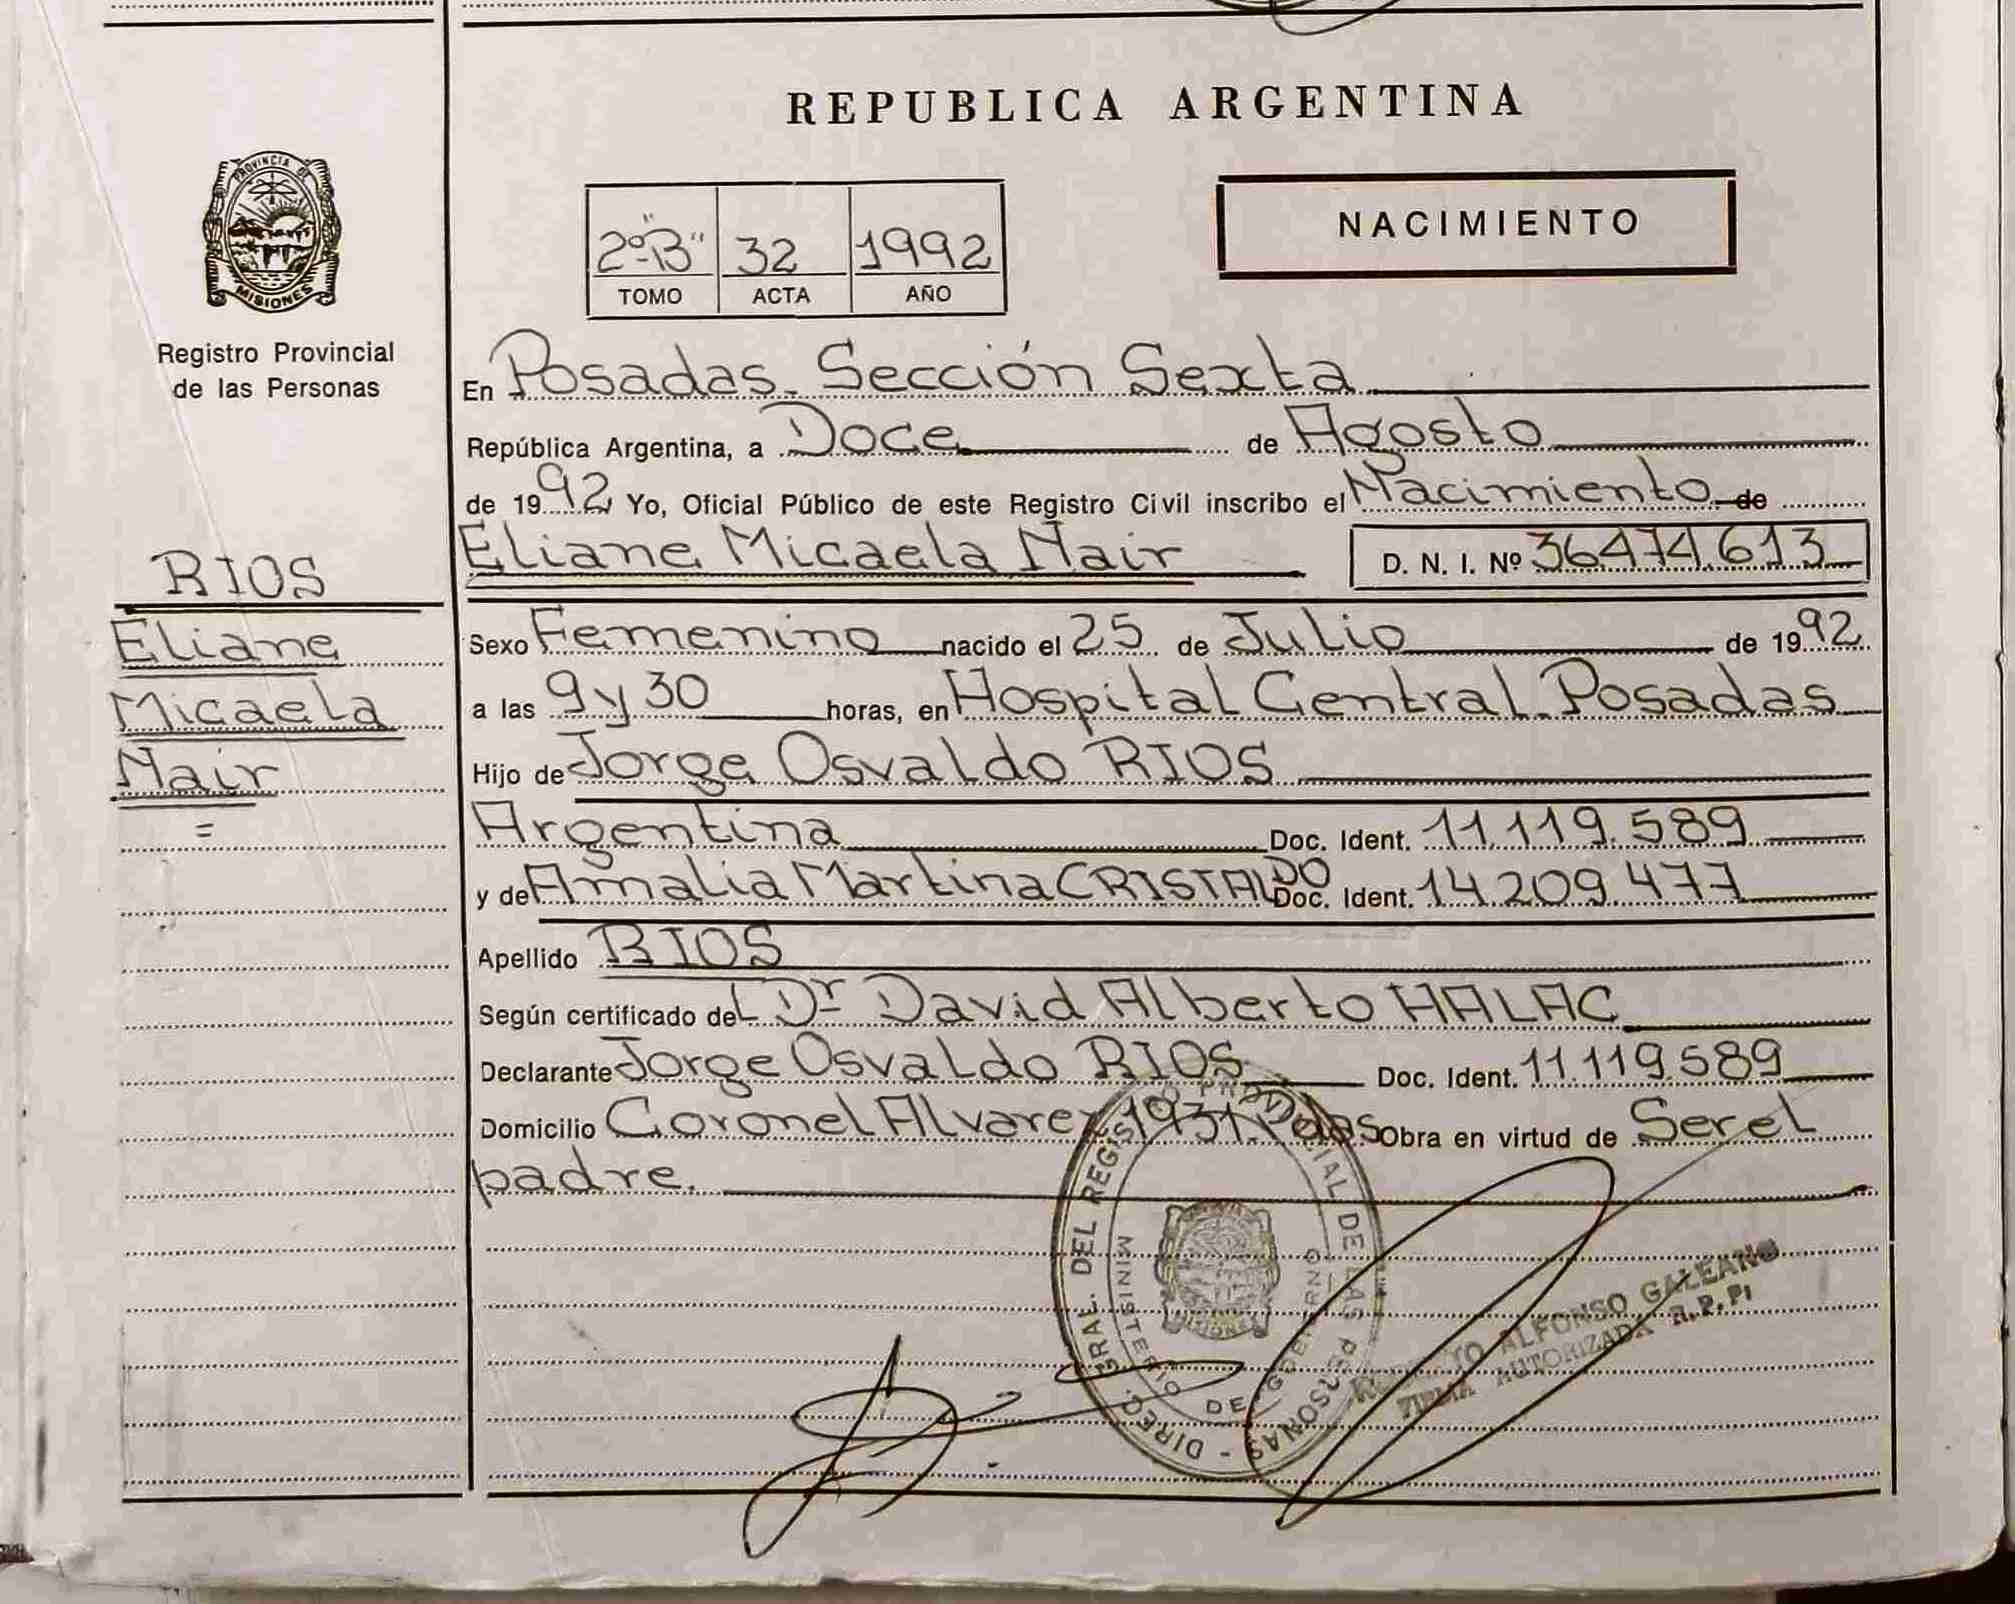 REPUBLICA ARGENTINA
PROVINCIA DE
MISIONES
Registro Provincial
de las Personas
NACIMIENTO
2º "B" 32 1992
TOMO ACTA AÑO
En Posadas. Sección Sexta
República Argentina, a Doce de Agosto
de 1992 Yo, Oficial Público de este Registro Civil inscribo el Nacimiento de
Eliane Micaela Nair D. N. I. Nº 36474.613
RIOS
Eliane
Micaela
Nair
=
Sexo Femenino nacido el 25 de Julio de 1992
a las 9 y 30 horas, en Hospital Central. Posadas
Hijo de Jorge Osvaldo RIOS
Argentina Doc. Ident. 11.119.589
y de Amalia Martina CRISTALDO Doc. Ident. 14.209.477
Apellido RIOS
Según certificado del Dr David Alberto HALAC
Declarante Jorge Osvaldo RIOS Doc. Ident. 11.119.589
Domicilio Coronel Alvarez 1931. Pdas Obra en virtud de Ser el
padre.
DIREC. GRAL. DEL REGISTRO PROVINCIAL DE LAS PERSONAS
MINISTERIO DE GOBIERNO
ALFONSO GALEANO
FIRMA AUTORIZADA R.P.P.